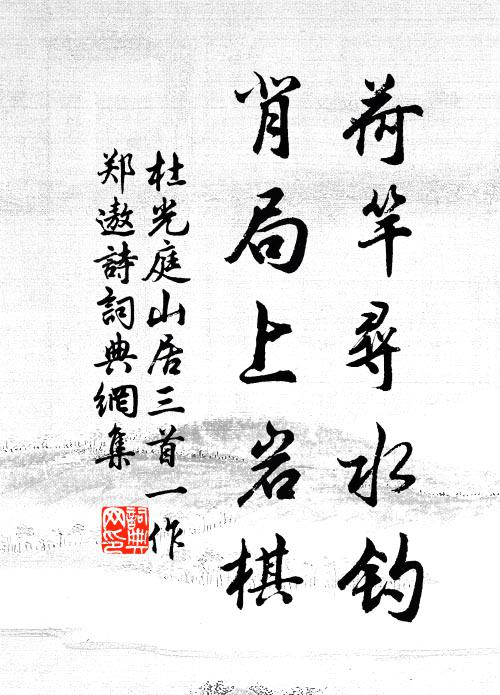 荷竿尋水钓
背局上岩棋
杜光庭山居三首一作
郑遨詩詞典網集
詞典
网印